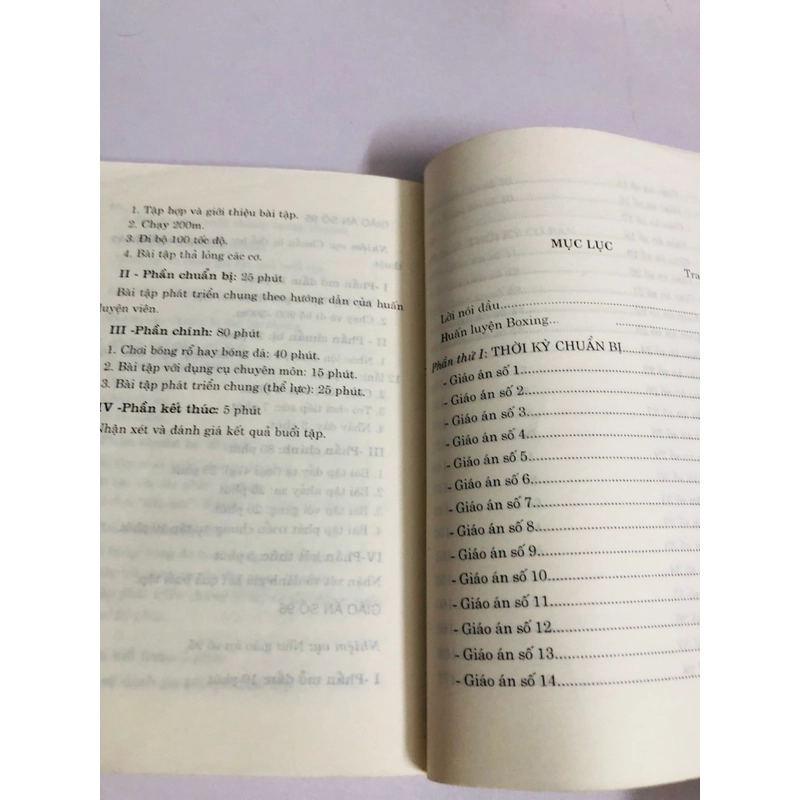 1. Tập hợp và giới thiệu bài tập.
2. Chạy 200m.
3. Đi bộ 100 tốc độ.
4. Bài tập thả lỏng các cơ.
II - Phần chuẩn bị: 25 phút
Bài tập phát triển chung theo hướng dẫn của huấn
luyện viên.
III -Phần chính: 80 phút
1. Chơi bóng rổ hay bóng đá: 40 phút.
2. Bài tập với dụng cụ chuyên môn: 15 phút.
3. Bài tập phát triển chung (thể lực): 25 phút.
IV -Phần kết thúc: 5 phút
Nhận xét và đánh giá kết quả buổi tập.
MỤC LỤC
Tra
Lời nói đầu
Huấn luyện Boxing...
Phần thứ I: THỜI KỲ CHUẨN BỊ
- Giáo án số 1
- Giáo án số 2
- Giáo án số 3
- Giáo án số 4
- Giáo án số 5
- Giáo án số 6
- Giáo án số 7
- Giáo án số 8
- Giáo án số 9
- Giáo án số 10
- Giáo án số 11
- Giáo án số 12
- Giáo án số 13
- Giáo án số 14